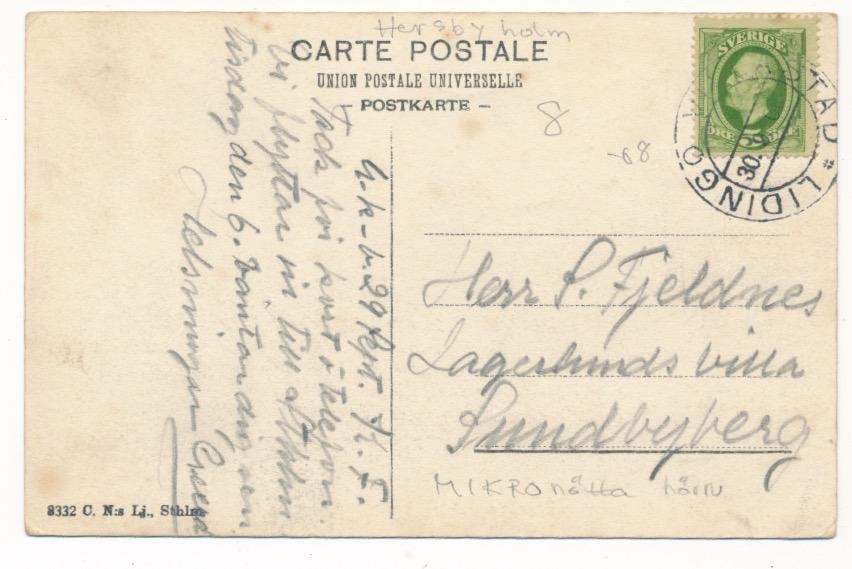 Hersby holm
CARTE POSTALE
UNION POSTALE UNIVERSELLE
– POSTKARTE –
8
-08
SVERIGE
ÖRE 5 ÖRE
LIDINGÖ VILLASTAD *
30.9
29 Sept.
Tack för kort o telefon.
Vi flyttar in till Sthlm
tisdag den 6. Väntar dig
Herr P. Fjeldnes
Lagerlunds villa
Sundbyberg
MIKRO nötta hörn
8332 C. N:s Lj., Sthlm